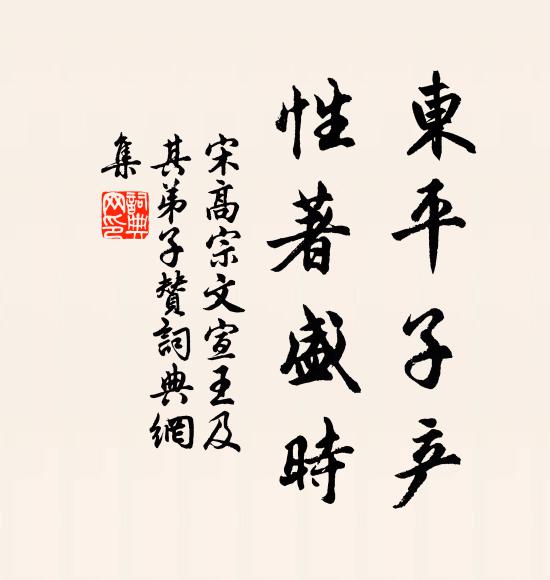 東平子产
性著盛時
宋高宗文宣王及
其弟子贊詞典網
集
詞典
网印